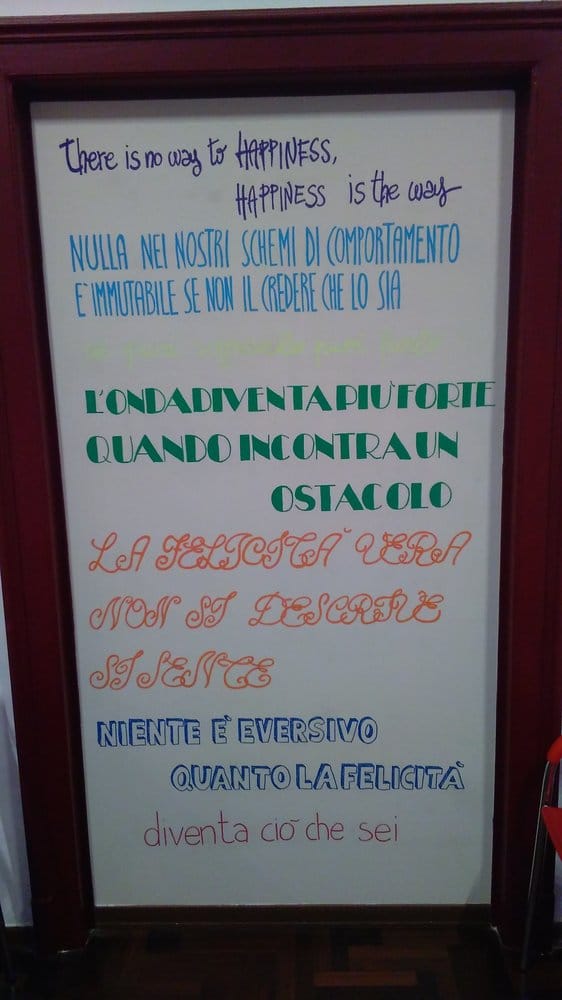 there is no way to HAPPINESS,
HAPPINESS is the way
NULLA NEI NOSTRI SCHEMI DI COMPORTAMENTO
E' IMMUTABILE SE NON IL CREDERE CHE LO SIA
L'ONDA DIVENTA PIU' FORTE
QUANDO INCONTRA UN
OSTACOLO
LA FELICITA' VERA
NON SI DESCRIVE
SI SENTE
NIENTE E' EVERSIVO
QUANTO LA FELICITÀ
diventa ciò che sei